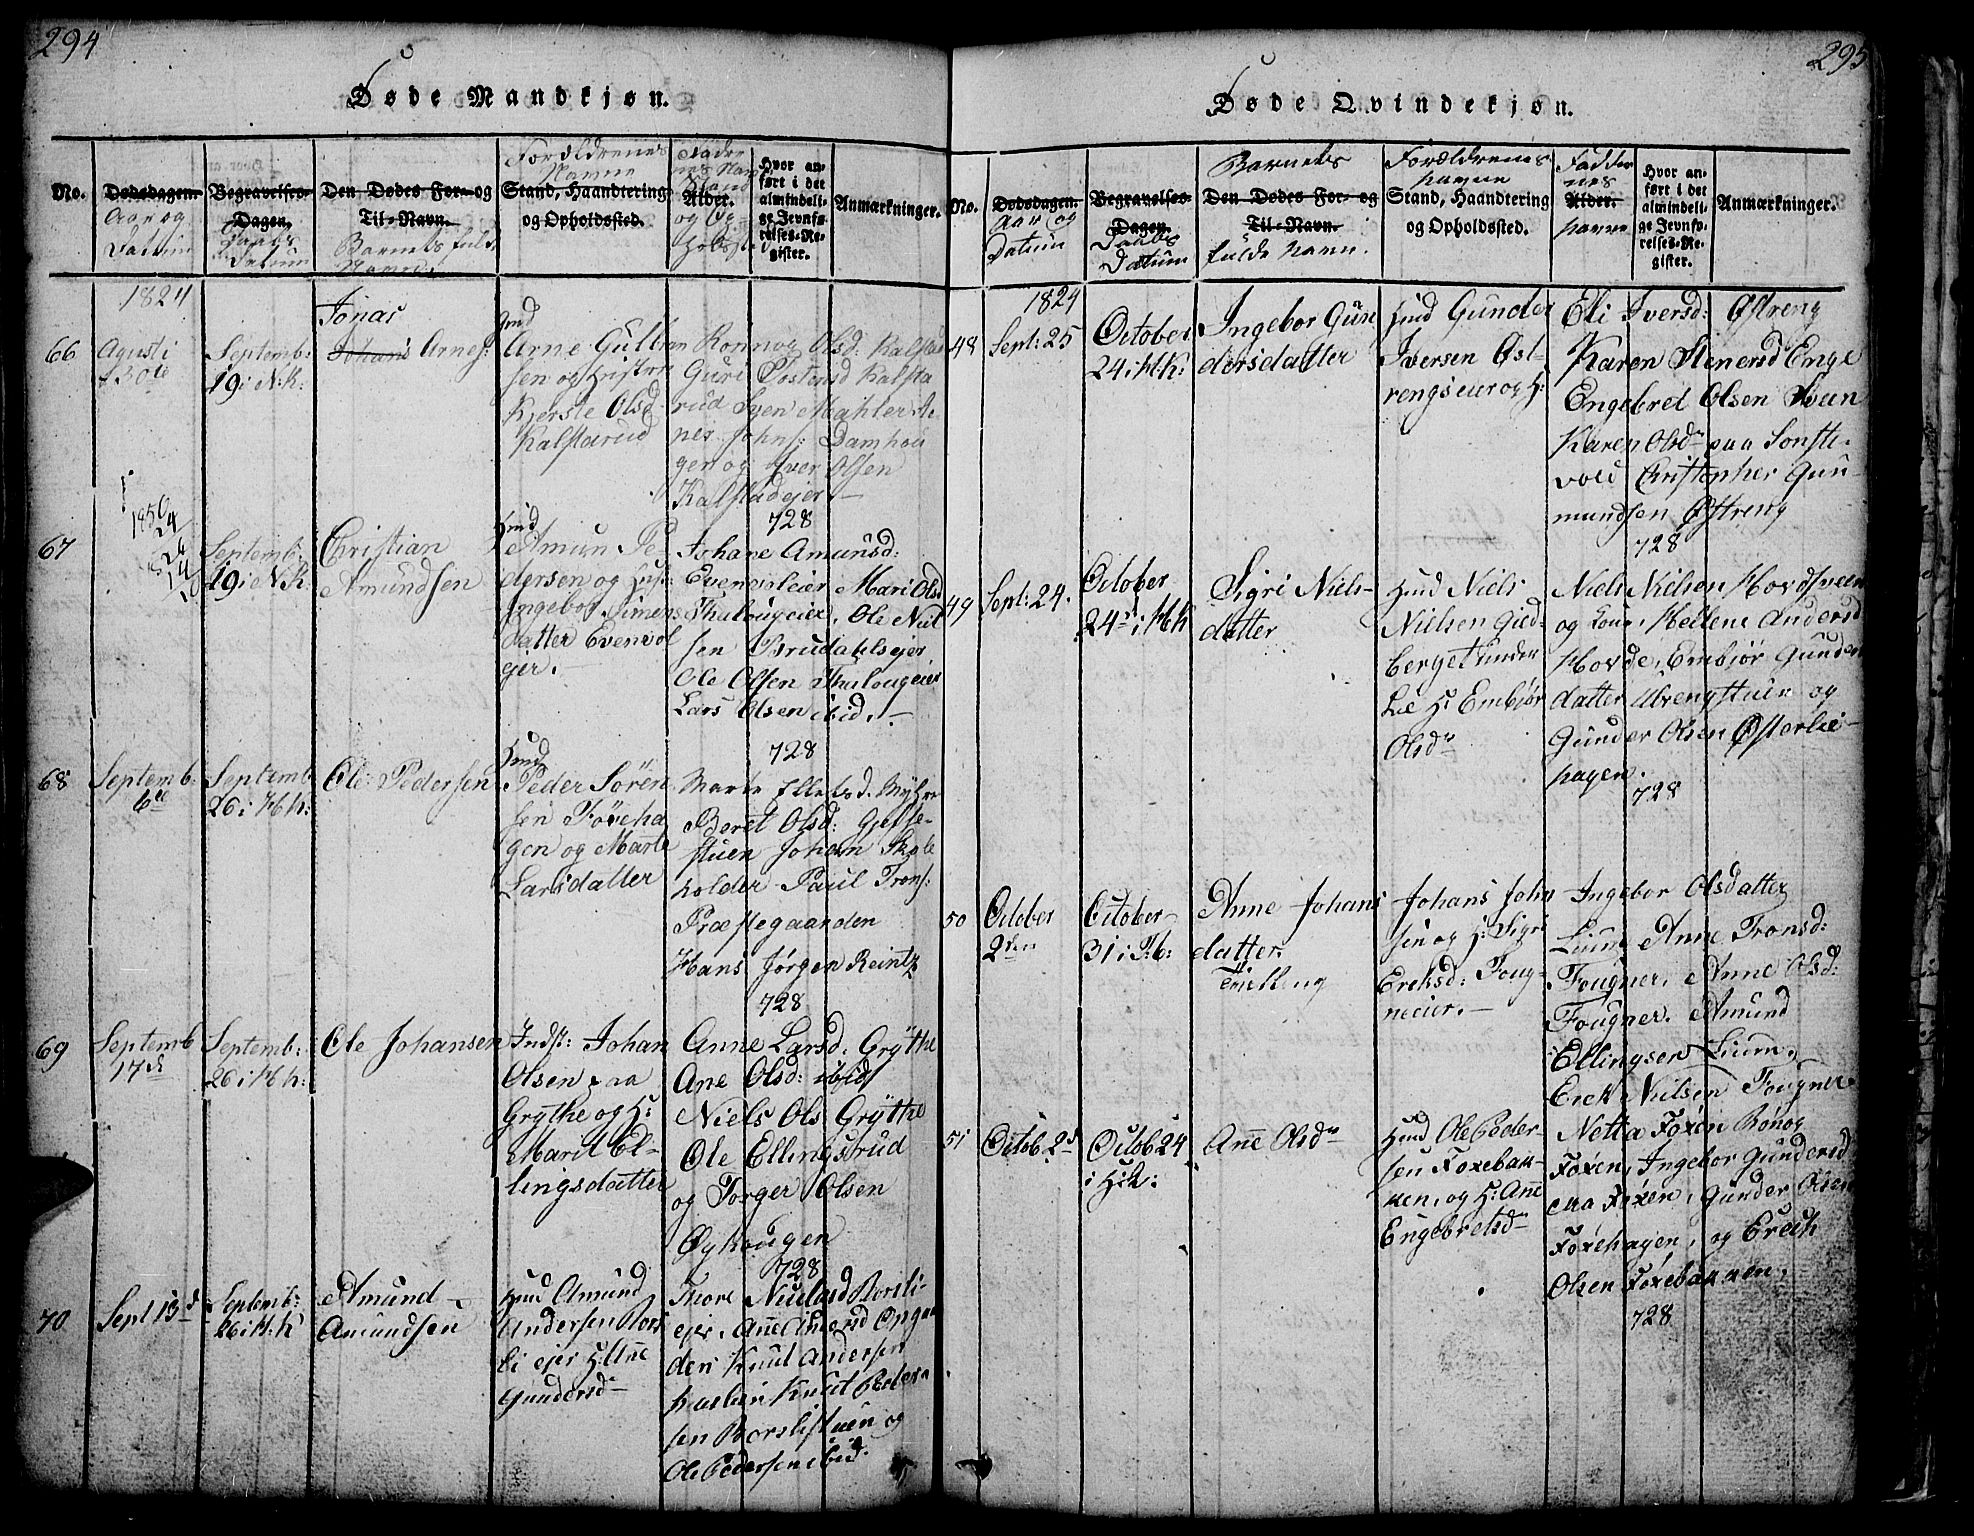 294
Døde Mandkjøn.
No.
Dødsdagen.
Aar og
Datum
Begravelses-
Dagen.
Daabs
Datum
Den Dødes For- og
Til-Navn.
Barnets fulde
Navne
Forældrenes
Navne
Stand, Haandtering
og Opholdssted.
Alder.
Hvor an-
ført i det
almindeli-
ge Jevnfø-
relses-Re-
gister.
Anmærkninger.
1824
66
Agusti
30te
Septemb:
19 i N:K:
Jonas
Johans Arnes:
Arne Gulbran
sen og Hustr
Kjerste Olsd
Kalstarud
Rønnog Olsd: Kalstad
Guri Tostensd Kalsta
rud Sven Mæhler
per Johns: Damhou
gen og Iver Olsen
Kalstadejer.
728
67
Septemb:
19 i N:K:
Christian
Amundsen
Hmd
Amun Pe-
dersen og Hus:
Ingebor Simens
datter Evenvol
ejer.
Johane Amunsd:
Evenvoleier, Mari Olsd
Thalougeier, Ole Niel
sen Brudahlsejer
Ole Olsen Thalougeier
Lars Olsen ibid.
728
68
Septemb
6te
Septemb
26 i H:k:
Ole Pedersen
Hmd
Peder Sören
sen Föreha
gen og Marte
Larsdatter
Marte Ellefsd. Myhre
Beret Olsd: Gjelse-
stuen Johan Skole
holder Paul Trons:
Præstegaarden
Hans Jørgen Reintz
728
69
Septemb
17d
Septemb:
26 i H:k:
Ole Johansen
Indst: Johan
Olsen paa
Grythe og H:
Marit El-
lingsdatter
Anne Larsd. Grÿthe
Ane Olsd: ibid
Niels Ols Grÿthe
Ole Ellingsrud
og Torger Olsen
Øyhougen
728
70
Sept 13d
Septemb:
26 i H:k
Amund
Amundsen
Hmd Amund
Andersen Bors
li ejer H: Ane
Gundersd
Thore Nielsd Borsli-
ejer. Ane Amersd Opga
den Knut Andersen
Knut Peder
sen Borslistuen og
Ole Pedersen ibid.
295
Døde Qvindekjøn.
No.
Dødsdagen.
Aar og
Datum
Begravelses
Dagen.
Daabs
Datum
Barnets
Den Dødes For- og
Til-Navn.
fulde Navn.
Forældrenes
Navne
Stand, Haandtering
og Opholdsted.
Fadder
nes
Alder.
Navne
Hvor an-
ført i det
almindeli-
ge Jevnfø-
relses-Re-
gister.
Anmærkninger.
1824
48
Sept: 25
October
24 i H:K:
Ingebor Gun
dersdatter
Hmd Gunder
Iversen Øst-
rengseier og H:
Eli Iversd: Østreng
Karen Stenersd Enge
Engebret Olsen Sveen
Karen Olsdr paa Sonste-
vold Christopher Gun-
mundsen Østreng
728
49
Sept: 24.
October
24d i H:K
Sigri Niels-
datter
Hmd Niels
Nielsen Gied-
berget under
Lie H: Embjør
Olsdr
Niels Nielsen Hovdsveen
og Kone, Hellene Andersd
Hovde, Embjør Gunder
datter Ulvengstuen og
Gunder Olsen Østerlie-
hagen.
728
50
October
2den
October
31 i F:b:
Anne Johans
datter.
Johans John
sen og H: Sigri
Ereksd: Foug-
neeier.
Ingebor Olsdatter
Lium, Anne Tronsd:
Fougner. Anne Olsd:
Fougner. Amund
Ellingsen Lium.
Erek Nielsen Fougner
51
Octob 2d
Octob 24
i H:k:
Ane Olsdr
Hmd Ole Peder-
sen Foxebak-
ken, og H: Ane
Engebretsdr
Netta Foxen Rønog
Foxen, Ingebor Gundersd
Foxen, Gunder Olsen
Foxehagen, og Erech
Olsen Foxebakken,
728